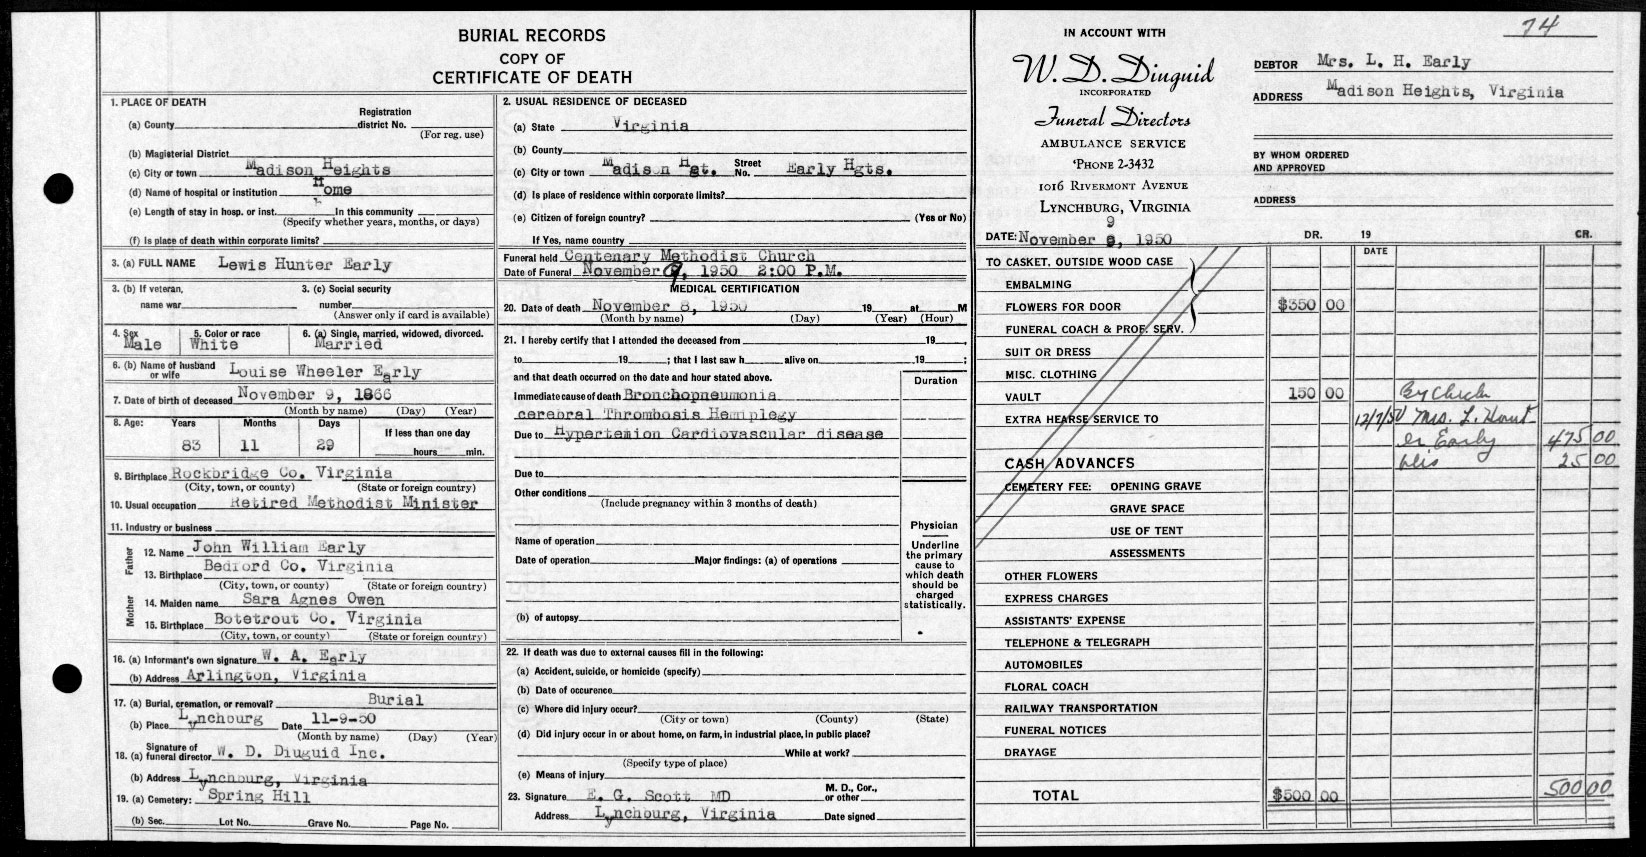 BURIAL RECORDS
COPY OF
CERTIFICATE OF DEATH
1. PLACE OF DEATH
Registration
(a) County district No.
(For reg. use)
(b) Magisterial District
(c) City or town Madison Heights
(d) Name of hospital or institution Home
(e) Length of stay in hosp. or inst. In this community
(Specify whether years, months, or days)
(f) Is place of death within corporate limits?
3. (a) FULL NAME Lewis Hunter Early
3. (b) If veteran, 3. (c) Social security
name war number
(Answer only if card is available)
4. Sex 5. Color or race 6. (a) Single, married, widowed, divorced.
Male White Married
6. (b) Name of husband or wife Louise Wheeler Early
7. Date of birth of deceased November 9, 1866
(Month by name) (Day) (Year)
8. Age: Years Months Days If less than one day
83 11 29 hours min.
9. Birthplace Rockbridge Co. Virginia
(City, town, or county) (State or foreign country)
10. Usual occupation Retired Methodist Minister
11. Industry or business
Father
12. Name John William Early
13. Birthplace Bedford Co. Virginia
(City, town, or county) (State or foreign country)
Mother
14. Maiden name Sara Agnes Owen
15. Birthplace Botetrout Co. Virginia
(City, town, or county) (State or foreign country)
16. (a) Informant's own signature W. A. Early
(b) Address Arlington, Virginia
17. (a) Burial, cremation, or removal? Burial
(b) Place Lynchburg Date 11-9-50
(Month by name) (Day) (Year)
18. (a) Signature of funeral director W. D. Diuguid Inc.
(b) Address Lynchburg, Virginia
19. (a) Cemetery: Spring Hill
(b) Sec. Lot No. Grave No. Page No.
2. USUAL RESIDENCE OF DECEASED
(a) State Virginia
(b) County
(c) City or town Madison Hgt. Street No. Early Hgts.
(d) Is place of residence within corporate limits?
(e) Citizen of foreign country? (Yes or No)
If Yes, name country
Funeral held Centenary Methodist Church
Date of Funeral November 9, 1950 2:00 P.M.
MEDICAL CERTIFICATION
20. Date of death November 8, 1950 19 at M
(Month by name) (Day) (Year) (Hour)
21. I hereby certify that I attended the deceased from 19 ,
to 19 ; that I last saw h alive on , 19 ;
and that death occurred on the date and hour stated above. Duration
Immediate cause of death Bronchopneumonia
cerebral Thrombosis Hemiplegy
Due to Hypertemion Cardiovascular disease
Due to
Other conditions
(Include pregnancy within 3 months of death)
Name of operation
Date of operation Major findings: (a) of operations
(b) of autopsy
Physician
Underline
the primary
cause to
which death
should be
charged
statistically.
22. If death was due to external causes fill in the following:
(a) Accident, suicide, or homicide (specify)
(b) Date of occurence
(c) Where did injury occur?
(City or town) (County) (State)
(d) Did injury occur in or about home, on farm, in industrial place, in public place?
While at work?
(Specify type of place)
(e) Means of injury
23. Signature E. G. Scott MD M. D., Cor., or other
Address Lynchburg, Virginia Date signed
74
IN ACCOUNT WITH
W. D. Diuguid
INCORPORATED
Funeral Directors
AMBULANCE SERVICE
'PHONE 2-3432
1016 RIVERMONT AVENUE
LYNCHBURG, VIRGINIA
DEBTOR Mrs. L. H. Early
ADDRESS Madison Heights, Virginia
BY WHOM ORDERED
AND APPROVED
ADDRESS
9
DATE: November 8, 1950 DR. 19 CR.
DATE
TO CASKET, OUTSIDE WOOD CASE
EMBALMING
FLOWERS FOR DOOR $350 00
FUNERAL COACH & PROF. SERV.
SUIT OR DRESS
MISC. CLOTHING
VAULT 150 00 By Check
EXTRA HEARSE SERVICE TO 12/7/50 Mrs. L. Hunt
er Early 475 00
CASH ADVANCES Dis 25 00
CEMETERY FEE: OPENING GRAVE
GRAVE SPACE
USE OF TENT
ASSESSMENTS
OTHER FLOWERS
EXPRESS CHARGES
ASSISTANTS' EXPENSE
TELEPHONE & TELEGRAPH
AUTOMOBILES
FLORAL COACH
RAILWAY TRANSPORTATION
FUNERAL NOTICES
DRAYAGE
TOTAL $500 00 500 00